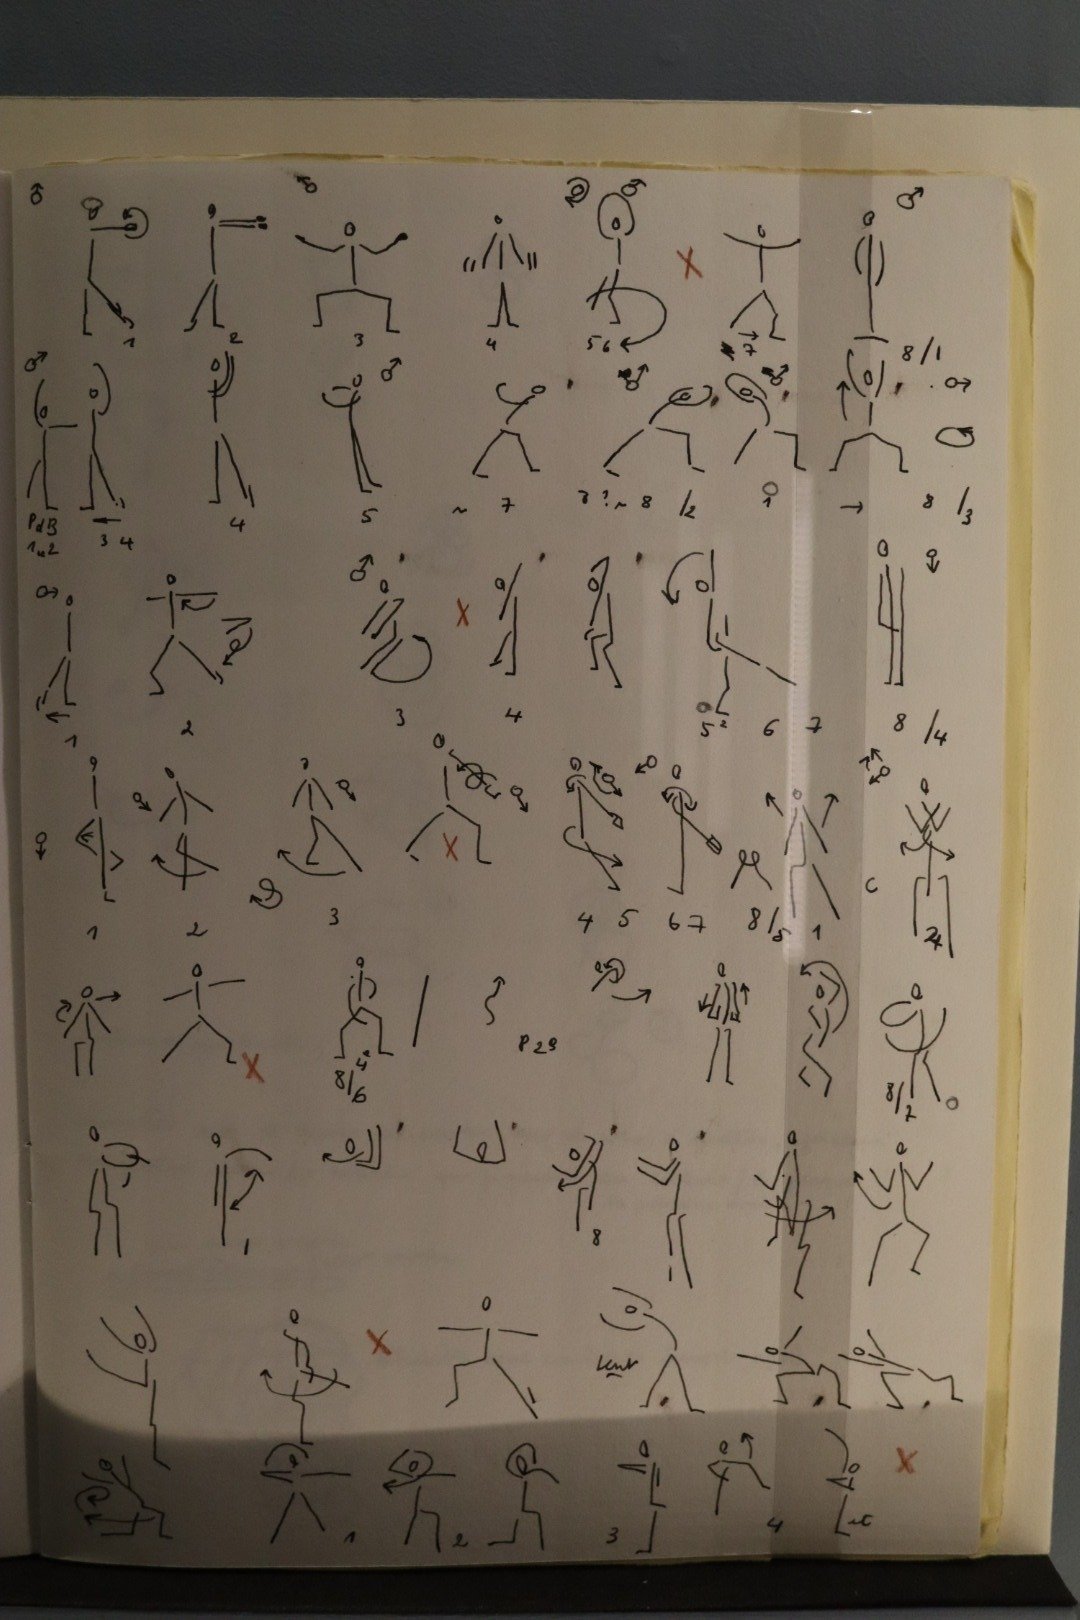 1 2 3 4 5 6 7 8/1
PdB
1 u 2 3 4 4 5 ~ 7 ? ~ 8 /2 1 → 8 /3
1 2 3 4 5 6 7 8 /4
1 2 3 4 5 6 7 8/5 1 2
8/6 P 29 8/7
1 8
lent
1 2 3 4